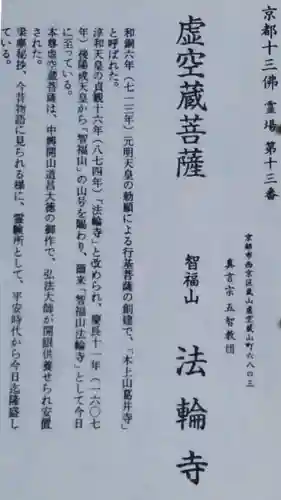 京都十三佛霊場 第十三番
京都市西京区嵐山虚空蔵山町六八ノ三
真言宗 五智教団
虚空蔵菩薩 智福山 法輪寺
和銅六年（七一三年）元明天皇の勅願による行基菩薩の創建で、「木上山葛井寺」
と呼ばれた。
淳和天皇の貞観十六年（八七四年）「法輪寺」と改められ、慶長十一年（一六〇七
年）後陽成天皇から「智福山」の山号を賜わり、爾来「智福山法輪寺」として今日
に至っている。
本尊虚空蔵菩薩は、中興開山道昌大徳の御作で、弘法大師が開眼供養せられ安置
された。
梁塵秘抄、今昔物語に見られる様に、霊験所として、平安時代から今日迄隆盛し
ている。